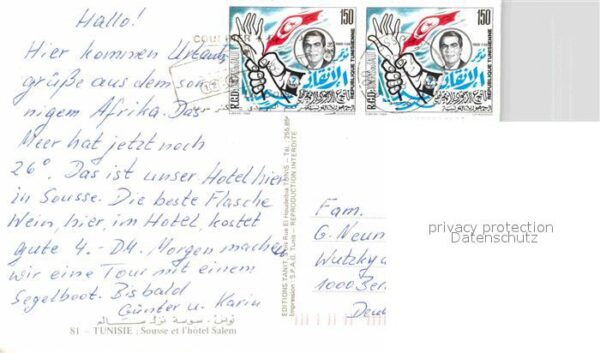 Hallo!
Hier kommen Urlaubs
grüße aus dem son
nigem Afrika. Das
Meer hat jetzt noch
26°. Das ist unser Hotel hier
in Sousse. Die beste Flasche
Wein, hier, im Hotel, kostet
gute 4.- DM. Morgen machen
wir eine Tour mit einem
Segelboot. Bis bald
Günter u. Karin
تونس - سوسة نزل سالم
81 - TUNISIE : Sousse et l'hotel Salem
EDITIONS TANIT, Rue El Houdeibia TUNIS - Tél.
Impression : S.P.A.G. Tunis - REPRODUCTION INTERDITE
150
REPUBLIQUE TUNISIENNE
150
REPUBLIQUE TUNISIENNE
Fam.
G. Neum
Wutzky
1000 Ber
Deut
privacy protection
Datenschutz